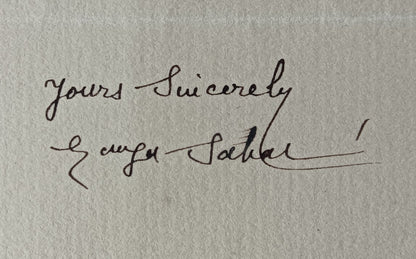 Yours Sincerely
Ganga Sahai